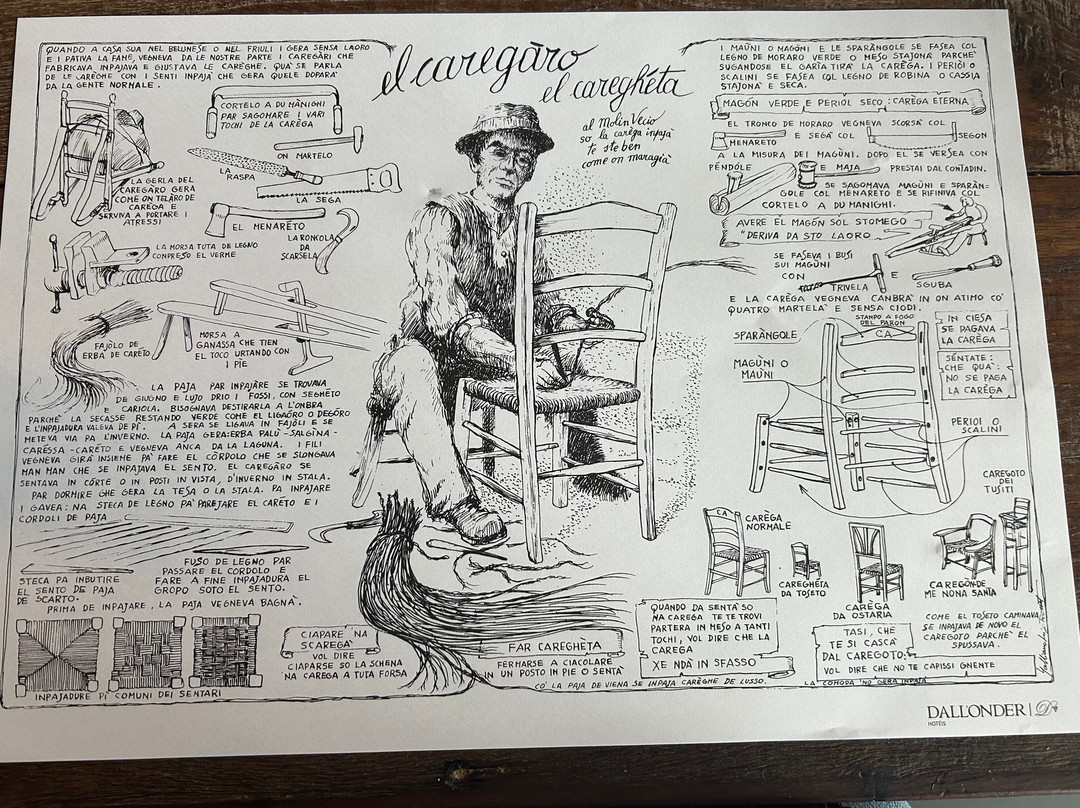 el caregàro
el careghéta
QUANDO A CASA SUA NEL BELUNESE O NEL FRIULI I GERA SENSA LAORO
E I PATIVA LA FAME, VEGNEVA DA LE NOSTRE PARTE I CAREGÀRI CHE
FABRICAVA INPAJAVA E GIUSTAVA LE CARÈGHE. QUÀ SE PARLA
DE LE CARÈGHE CON I SENTI INPAJÀ CHE GERA QUELE DOPARÀ
DA LA GENTE NORMALE.
CORTELO A DU MÀNIGHI
PAR SAGOMARE I VARI
TOCHI DE LA CARÈGA
ON MARTELO
LA
RASPA
LA SEGA
LA GERLA DEL
CAREGÀRO GERA
COME ON TELÀRO DE
CARÈGA E
SERVIVA A PORTARE I
ATRESSI
EL MENARÉTO
LA RONKOLA
DA
SCARSELA
LA MORSA TUTA DE LEGNO
CONPRESO EL VERME
FAJÒLO DE
ERBA DE CARETO
MORSA A
GANASSA CHE TIEN
EL TOCO URTANDO CON
I PIE
LA PAJA PAR INPAJÀRE SE TROVAVA
DE GIUGNO E LUJO DRIO I FOSSI, CON SEGHÉTO
E CARIOLA. BISOGNAVA DESTIRARLA A L'ONBRA
PARCHÈ LA SECASSE RESTANDO VERDE COME EL LIGAÓRO O DEGÓRO
E L'INPAJADURA VALEVA DE PÌ. A SERA SE LIGAVA IN FAJÒLI E SE
METEVA VIA PA L'INVERNO. LA PAJA GERA: ERBA PALÙ - SALGÌNA -
CARESSA - CARÉTO E VEGNEVA ANCA DA LA LAGUNA. I FILI
VEGNEVA GIRÀ INSIEME PA' FARE EL CÓRDOLO CHE SE SLONGAVA
MAN MAN CHE SE INPAJAVA EL SENTO. EL CAREGÀRO SE
SENTAVA IN CÓRTE O IN POSTI IN VISTA, D'INVERNO IN STALA.
PAR DORMIRE GHE GERA LA TESA O LA STALA. PA INPAJARE
I GAVEA: NA STECA DE LEGNO PA' PAREJARE EL CARÉTO E I
CORDOLI DE PAJA
STECA PA INBUTIRE
EL SENTO DE PAJA
DE SCARTO.
FUSO DE LEGNO PAR
PASSARE EL CORDOLO E
FARE A FINE INPAJADURA EL
GROPO SOTO EL SENTO.
PRIMA DE INPAJARE, LA PAJA VEGNEVA BAGNÀ.
INPAJADURE PI' COMUNI DEI SENTARI
al Molin Vecio
so la carèga inpajà
te ste ben
come on maragià
CIAPARE NA
SCAREGÀ
VOL DIRE
CIAPARSE SO LA SCHENA
NA CAREGA A TUTA FORSA
FAR CAREGHÈTA
FERMARSE A CIACOLARE
IN UN POSTO IN PIE O SENTÀ
CO' LA PAJA DE VIENA SE INPAJA CARÈGHE DE LUSSO.
I MAÙNI O MAGÓNI E LE SPARÀNGOLE SE FASEA COL
LEGNO DE MORARO VERDE O MESO STAJONÀ PARCHÈ
SUGANDOSE EL GARÌA TIRÀ LA CARÈGA. I PERIÒI O
SCALINI SE FASEA COL LEGNO DE ROBINA O CASSIA
STAJONÀ E SECA.
MAGÓN VERDE E PERIOL SECO: CARÈGA ETERNA
EL TRONCO DE MORARO VEGNEVA SCORSÀ COL
MENARETO E SEGÀ COL SEGON
A LA MISURA DEI MAGÙNI. DOPO EL SE VERSEA CON
PÉNDÓLE E MAJA PRESTAI DAL CONTADIN.
SE SAGOMAVA MAGÙNI E SPARÀN=
GOLE COL MENARETO E SE RIFINIVA COL
CORTELO A DU MANIGHI.
AVERE EL MAGÓN SÓL STOMEGO
"DERIVA DA STO LAORO
SE FASEVA I BUSI
SUI MAGÙNI
CON TRIVELA E SGUBA
E LA CARÈGA VEGNEVA CANBRÀ IN ON ATIMO CO'
QUATRO MARTELÀ E SENSA CIODI.
STAMPO A FOGO
DEL PARON
CA
SPARÀNGOLE
MAGÙNI O
MAUNI
IN CIESA
SE PAGAVA
LA CARÈGA
SÉNTATE:
CHE QUA'
NO SE PAGA
LA CARÈGA
PERIOI O
SCALINI
CAREGOTO
DEI
TUSITI
CA
CARÈGA
NORMALE
CAREGHÉTA
DA TOSETO
CARÈGA
DA OSTARIA
CAREGONDE
ME NONA SANTA
QUANDO DA SENTÀ SO
NA CAREGA TE TE TROVI
PARTERA IN MESO A TANTI
TOCHI, VOL DIRE CHE LA
CAREGA
XE NDÀ IN SFASSO
TASI, CHE
TE SI CASCÀ
DAL CAREGOTO:
VOL DIRE CHE NO TE CAPISSI GNENTE
COME EL TOSETO CAMINAVA
SE INPAJAVA DE NOVO EL
CAREGOTO PARCHÈ EL
SPUSSAVA.
LA COMODA NO GERA INPAJÀ
DALL'ONDER
HOTELS